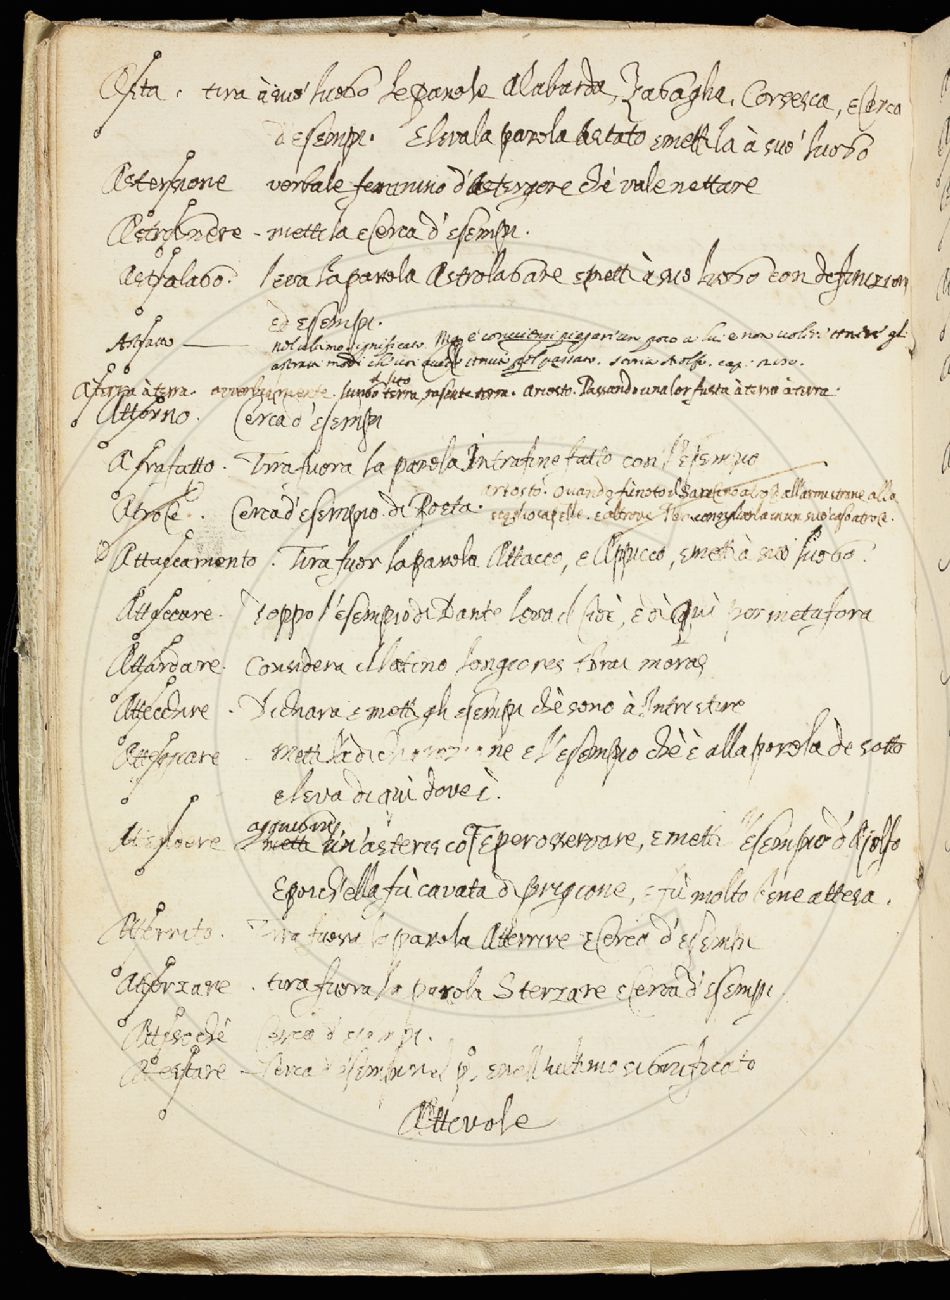 Asta. tira à suo luogo le parole Alabarda, Zagaglia, Corsesca, e cerca
d'esempi. E leva la parola Astato e mettila à suo luogo
Astersione verbale feminino d'Astergere che vale nettare
Astrignere - mettila e cerca d'esempi.
Astrolabo. leva la parola Astrolabare e metti à suo luogo con definizioni
ed esempi.
Astratto nel ultimo significato. è convienti piegar un poco a lui e non voler tener gli
astratti modi che usi
Aterra à terra. avverbialmente. terra terra. Ariosto. Passando una lor fusta à terra à terra.
Attorno. Cerca d'esempi
Atrafatto. Tira fuora la parola Intrafinefatto con l'esempio
Ariosto. Quando fù noto il Saracino atroce all'arme istrane alla
Atroce. Cerca d'esempio di Poeta. scagliosa pelle. e altrove suo caso atroce.
Attaccamento. Tira fuor la parola Attacco, e Appicco, e metti à suo luogo.
Attaccare. Doppo l'esempio di Dante leva il Cioè, e dì Quì per metafora
Attardare. Considera il latino longiores trai moras
Attecchire. Dichiara e metti gli esempi che sono à Intristire
Attempare - Metti la dichiarazione e l'esempio che è alla parola de sotto
e leva di quì dove è.
Attendere aggiugni un asterisco per osservare, e metti l'esempio d'Ajolfo
E poich'ella fù cavata di prigione, e fù molto bene attesa.
Atterrito. Tira fuora la parola Atterrire e cerca d'esempi
Atterzare. tira fuora la parola Sterzare e cerca d'esempi.
Attesoché Cerca d'esempi.
Attestare - Cerca d'esempi nel p.º e nell'ultimo significato
Attevole